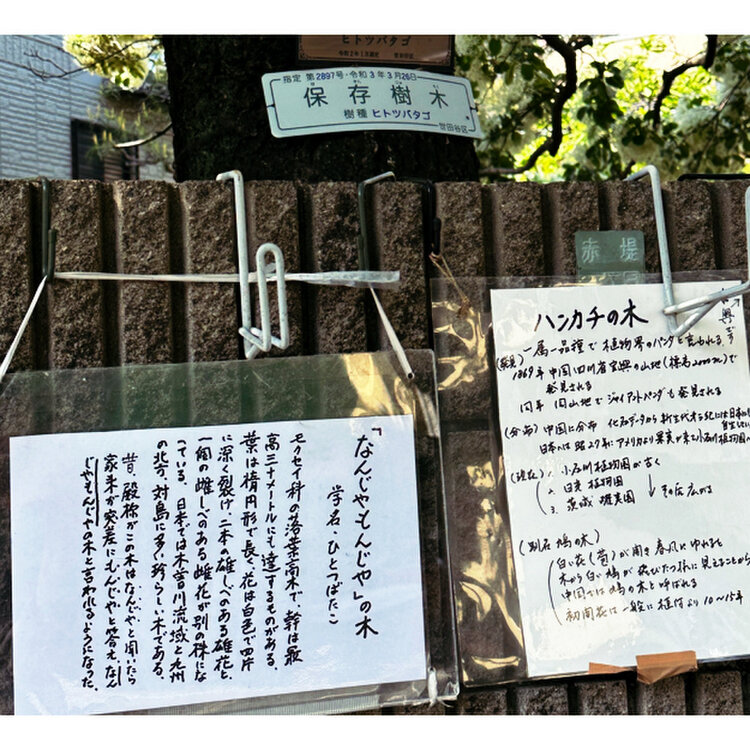 ヒトツバタゴ
指定 第2897号・令和3年3月26日
保存樹木
樹種 ヒトツバタゴ
世田谷区
赤堤
「なんじゃもんじゃ」の木
学名・ひとつばたご
モクセイ科の落葉高木で、幹は最
高三十メートルにも達するものがある。
葉は楕円形で長く、花は白色で四片
に深く裂け、二本の雄しべのある雄花と、
一個の雌しべのある雌花が別の株にな
っている。日本では木曽川流域と九州
の北方、対馬に多い珍らしい木である。
昔、殿様がこの木はなんじゃと聞いたら
家来が実差にもんじゃと答え、なん
じゃもんじゃの木と言われるようになった。
ハンカチの木
(発見) 一属一品種で植物界のパンダと言われる
1869年中国四川省宝興の山地(標高2000m)で
発見される
同年 同山地でジャイアントパンダも発見される
(分布) 中国に分布 化石データから新生代
日本へは昭27年にアメリカより果実が来て小石川植物園へ
(現在) 1. 小石川植物園が古く
2. 日光植物園
3. 茨城
その后広がる
(別名 鳩の木)
白い花(苞)が開き春風にゆれると
木から白い鳩が飛びたつ様に見えることから
中国では鳩の木と呼ばれる
初開花は一般に植付より10〜15年